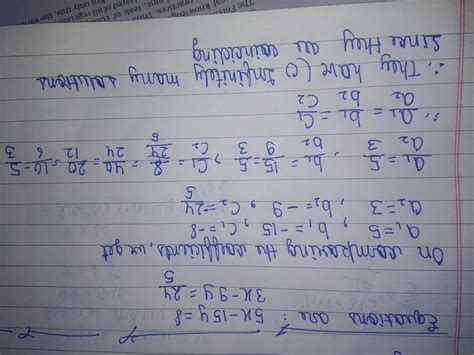 Equations are: 5x-15y=8
3x-9y=24/5
On comparing the coefficients, we get
a₁=5, b₁=-15, c₁=-8
a₂=3, b₂=-9, c₂=-24/5
a₁/a₂=5/3, b₁/b₂=15/9=5/3, c₁/c₂=8/(24/5)=40/24=20/12=10/6=5/3
∴ a₁/a₂=b₁/b₂=c₁/c₂
∴ They have (∞) Infinitely many solutions
since they are coinciding